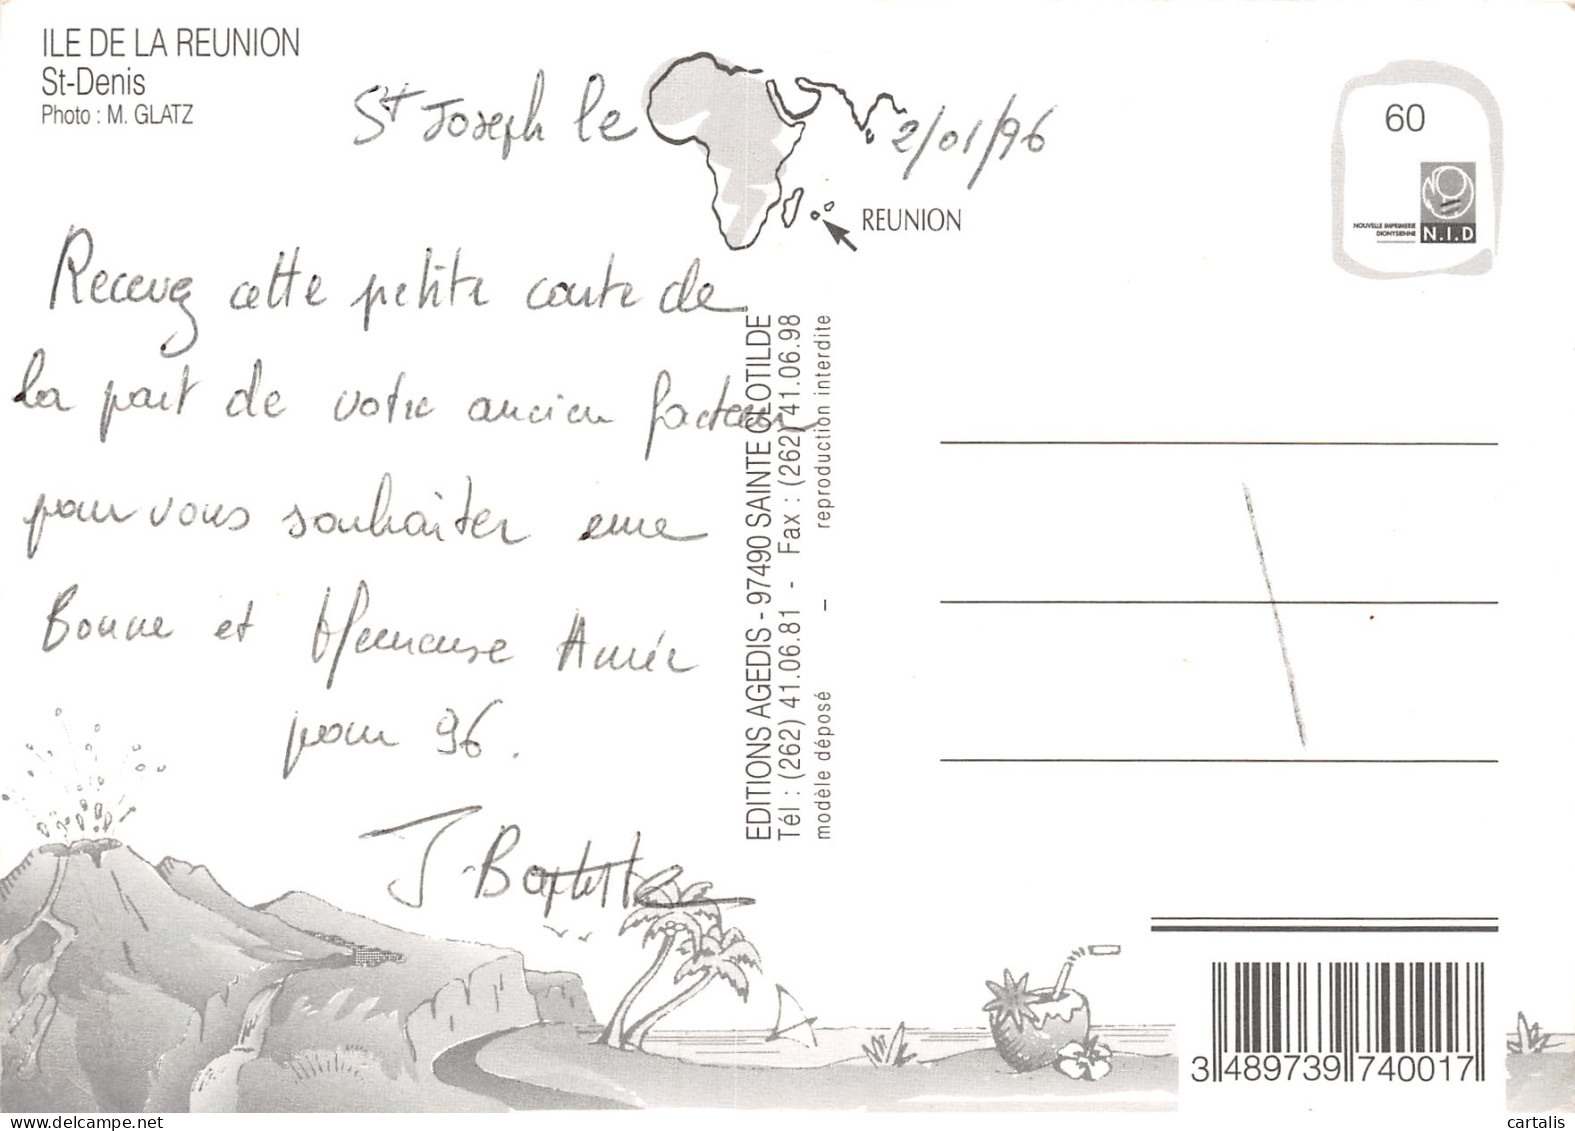 ILE DE LA REUNION
St-Denis
Photo : M. GLATZ
St Joseph le 2/01/96
REUNION
60
NOUVELLE IMPRIMERIE
DIONYSIENNE
N.I.D
Recevez cette petite carte de
la part de votre ancien facteur
pour vous souhaiter une
Bonne et Heureuse Année
pour 96.
J. Baptiste
EDITIONS AGEDIS - 97490 SAINTE CLOTILDE
Tél : (262) 41.06.81 - Fax : (262) 41.06.98
modèle déposé – reproduction interdite
3 489739 740017
cartalis